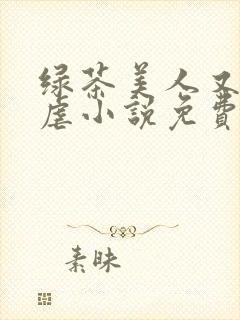 绿茶美人又
虐小說免費
素昧